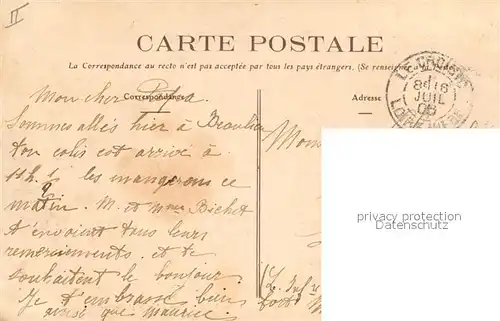 II
CARTE POSTALE
La Correspondance au recto n'est pas acceptée par tous les pays étrangers. (Se renseigner
Correspondance
Adresse
LE CROISIC
8 16
JUIL
LOIRE
Mon cher
Sommes allés hier à Beaulieu
ton colis est arrivé à
11h ½ les mangerons ce
matin. M. et Mme Bichet
t'envoient tous leurs
remerciements et te
souhaitent le bonjour
Je t'embrasse bien
ainsi que Maurice.
privacy protection
Datenschutz